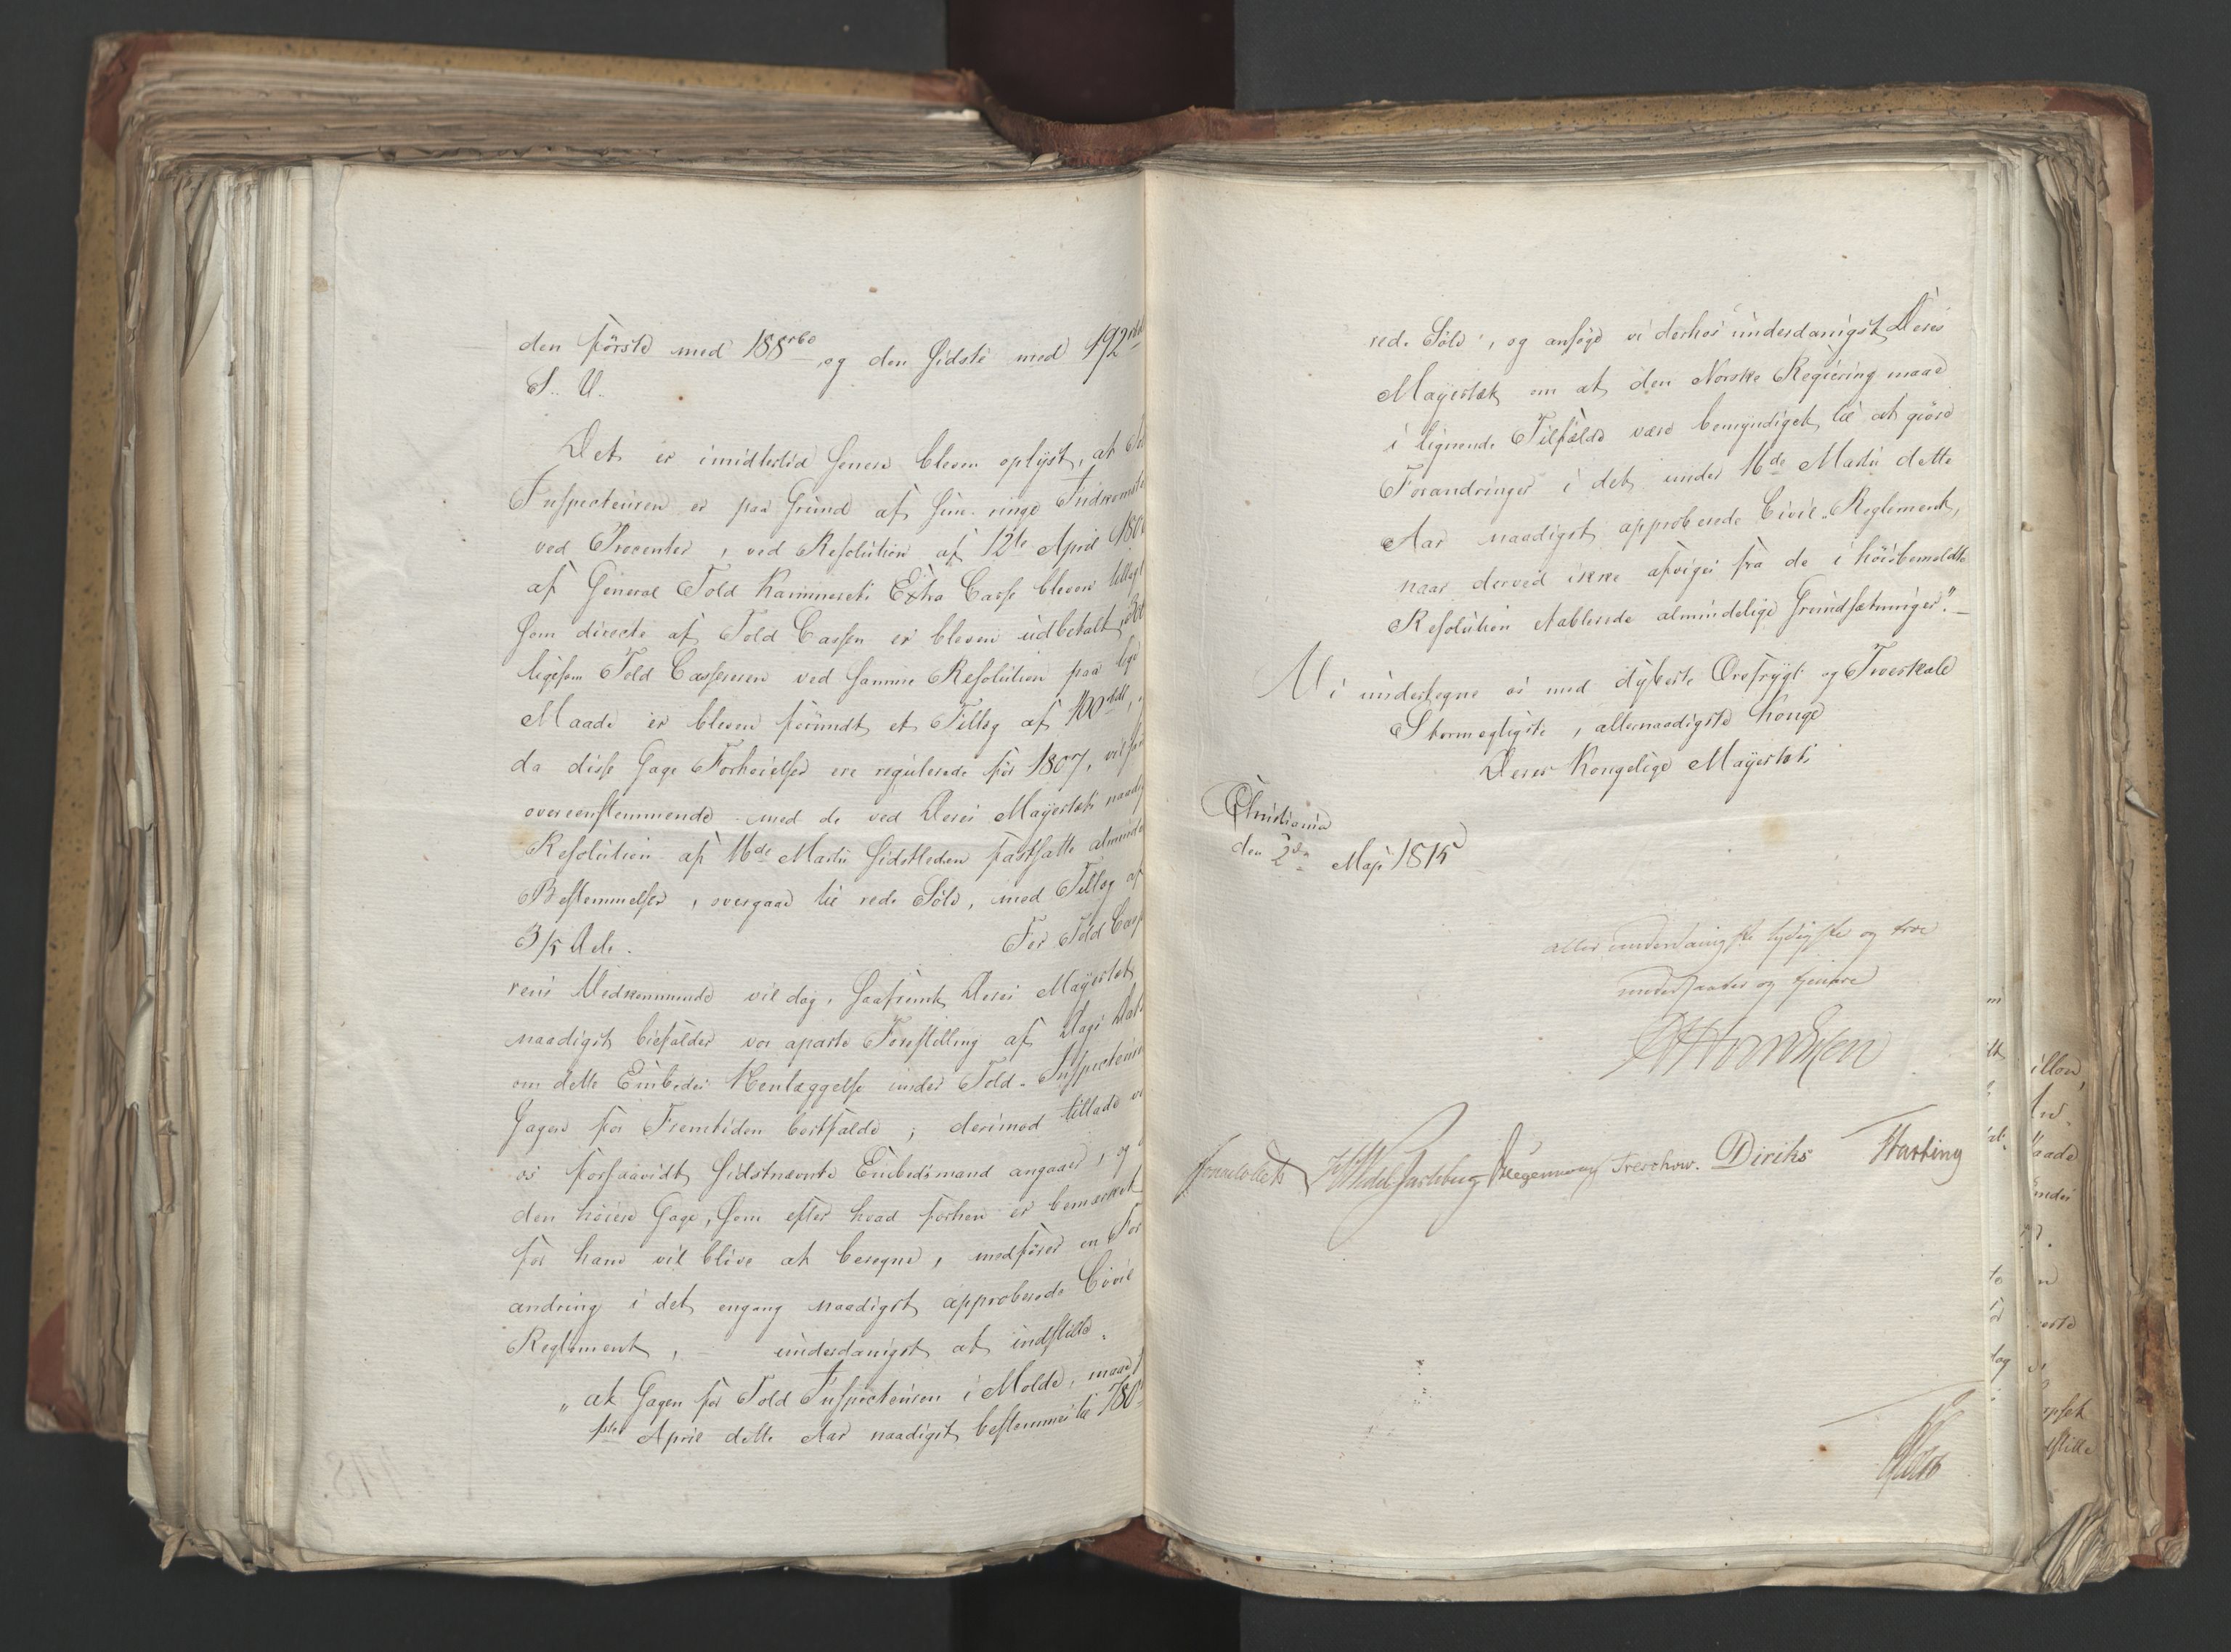 den förste med 188 rbd og den sidste med 192 rbd
S. V.
Det er imidlertid senere bleven oplyst, at
Inspecteuren er paa Grund af sine ringe Indkomster
ved Procenter, ved Resolution af 12te April 180
af General Told Kammerets Extra Casse bleven tillagt
som directe af Told Cassen er bleven udbetalt,
ligesom Told Cassereren ved samme Resolution paa lige
Maade er bleven forundt et Tillæg af 100 rdlr,
da disse Gage Forhøielser ere regulerede før 1807, vil
overeensstemmende med de ved Deres Majestæts naadi
Resolution af 16de Martii sidstleden fastsatte alminde
Bestemmelser, overgaae til rede Sølv, med Tillæg af
3/5 Dele. For Told Cass
rens Vedkommende vil dog, saafremt Deres Majestæt
naadigst biefalder vor aparte Forestilling af Dags Dato
om dette Embedes Henlæggelse under Told-Inspecteuren
Gagen for Fremtiden bortfalde; derimod tillade vi
os forsaavidt sidstnævnte Embedsmand angaaer, og
den høiere Gage, som efter hvad forhen er bemærket
for ham vil blive at beregne, medfører en For
andring i det engang naadigst approberede Civil
Reglement, – underdanigst at indstille.
"at Gagen for Told Inspecteuren i Molde, maae f
1ste April dette Aar naadigst bestemmes til 780
rede Sølv", og ansøge vi derhos underdanigst Deres
Majestæt om at den Norske Regiering maae
i lignende Tilfælde være bemyndiget til at giøre
Forandringer i det under 16de Martii dette
Aar naadigst approberede Civil-Reglement,
naar derved ikke afviges fra de i høistbemeldte
Resolution etablerede almindelige Grundsætninger." –
Vi undertegne os med dybeste Ærefrygt og Troeskab
Stormægtigste, allernaadigste Konge
Deres Kongelige Majestæts
Christiania
den 2den Maji 1815
aller underdanigste lydigste og troe
undersaatter og tjenere
Sommerhielm Wedel Jarlsberg Hegermann Treschow. Diriks Hasting